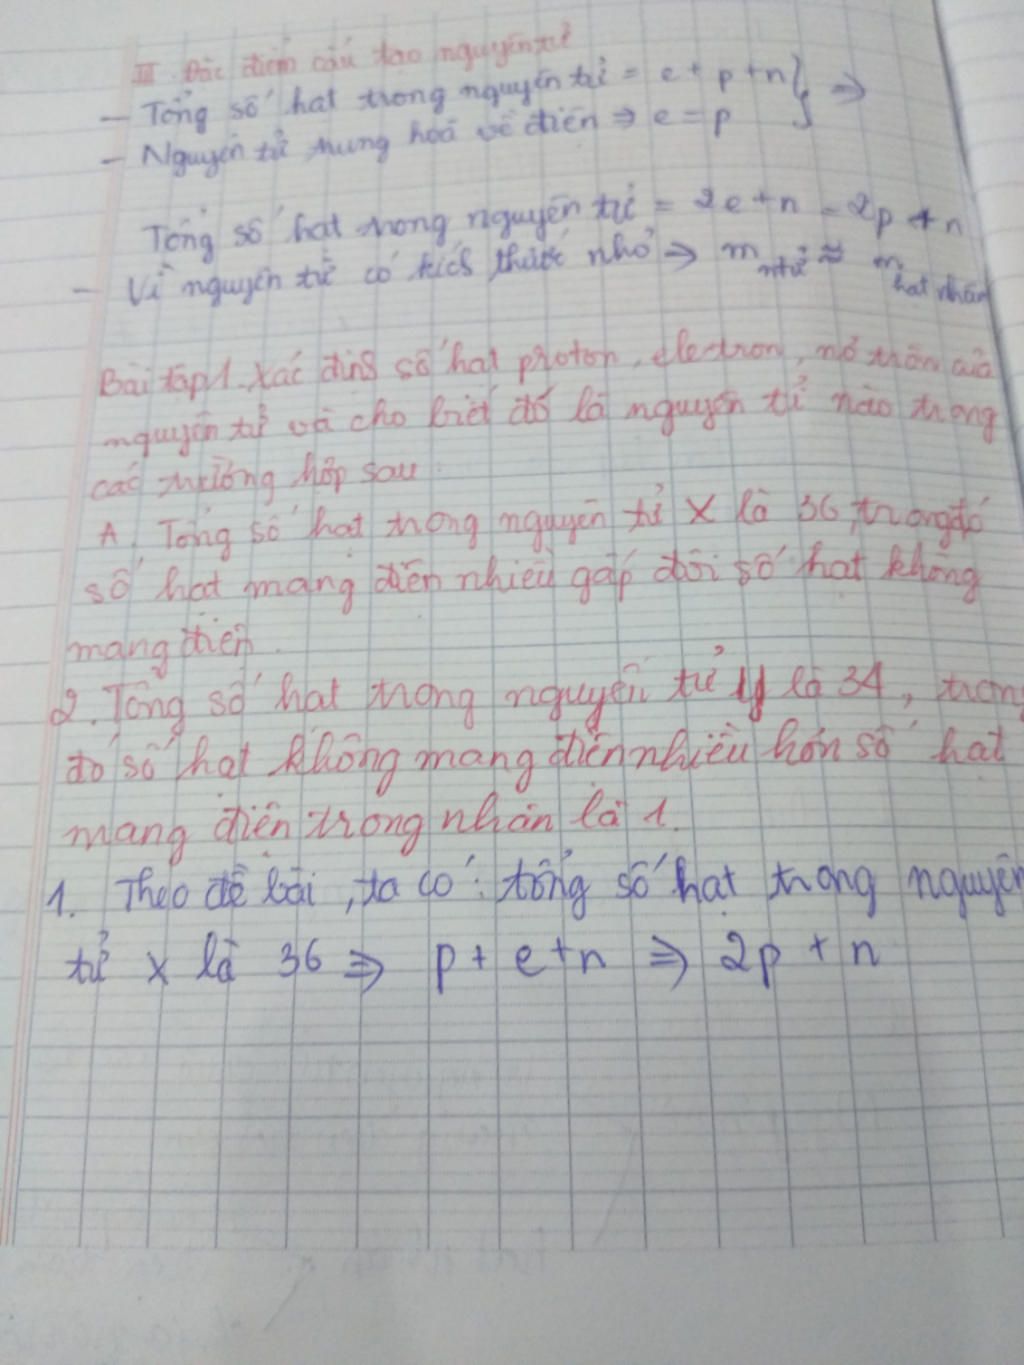 III. Đặc điểm cấu tạo nguyên tử
- Tổng số hạt trong nguyên tử = e + p + n } ⇒
- Nguyên tử trung hoà về điện ⇒ e = p
Tổng số hạt trong nguyên tử = 2e + n = 2p + n
- Vì nguyên tử có kích thước nhỏ ⇒ m ntử ≈ m hạt nhân
Bài tập 1. Xác định số hạt proton, electron, nơ trôn của
nguyên tử và cho biết đó là nguyên tử nào trong
các trường hợp sau:
1. Tổng số hạt trong nguyên tử X là 36, trong đó
số hạt mang điện nhiều gấp đôi số hạt không
mang điện.
2. Tổng số hạt trong nguyên tử y là 34, trong
đó số hạt không mang điện nhiều hơn số hạt
mang điện trong nhân là 1.
1. Theo đề bài, ta có: tổng số hạt trong nguyên
tử X là 36 ⇒ p + e + n ⇒ 2p + n